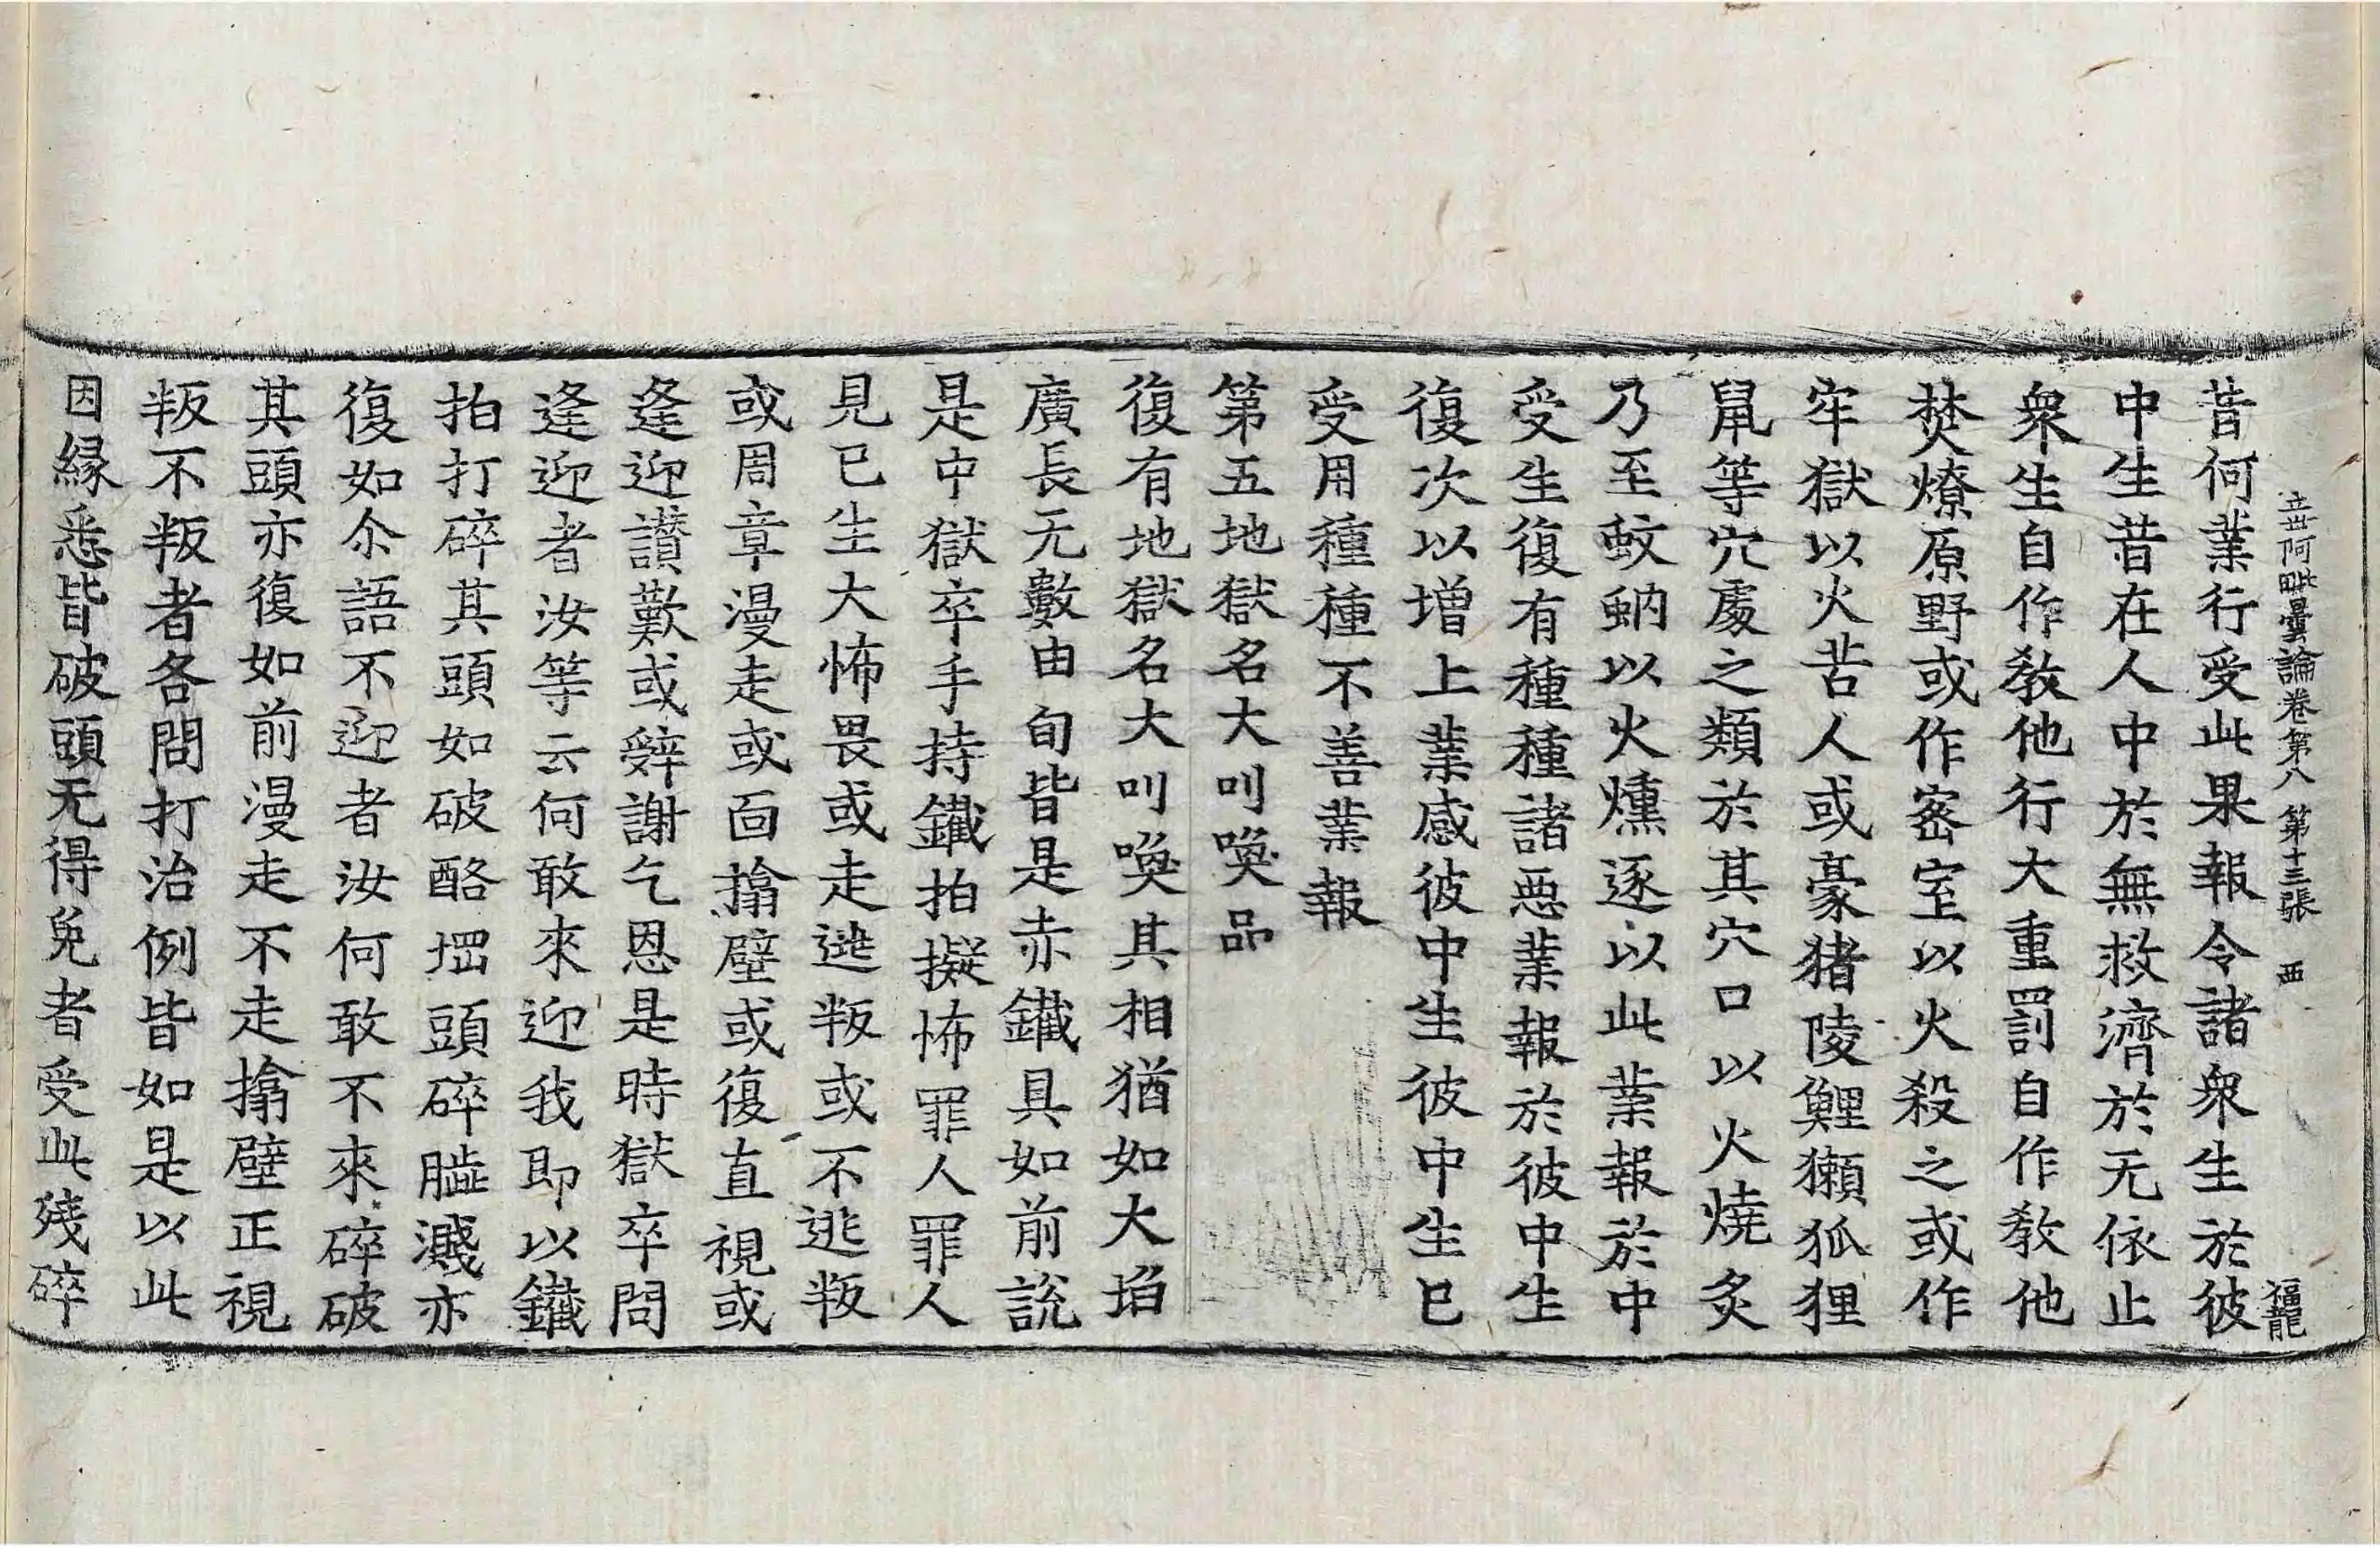 立世阿毗曇論卷第八 第十三張 西 福龍
昔何業行受此果報令諸衆生於彼
中生昔在人中於無救濟於无依止
衆生自作教他行大重罰自作教他
焚燎原野或作密室以火殺之或作
牢獄以火苦人或豪猪陵鯉獺狐狸
鼠等穴處之類於其穴口以火燒炙
乃至蚊蚋以火燻逐以此業報於中
受生復有種種諸惡業報於彼中生
復次以增上業感彼中生彼中生已
受用種種不善業報
第五地獄名大叫喚品
復有地獄名大叫喚其相猶如大㘅
廣長无數由旬皆是赤鐵具如前說
是中獄卒手持鐵拍擬怖罪人罪人
見已生大怖畏或走逃叛或不逃叛
或周章漫走或面搶壁或復直視或
逢迎讃歎或辤謝乞恩是時獄卒問
逢迎者汝等云何敢來迎我即以鐵
拍打碎其頭如破酪堈頭碎𦠄濺亦
復如尒語不迎者汝何敢不來碎破
其頭亦復如前漫走不走搶壁正視
叛不叛者各問打治例皆如是以此
因緣悉皆破頭无得免者受此殘碎